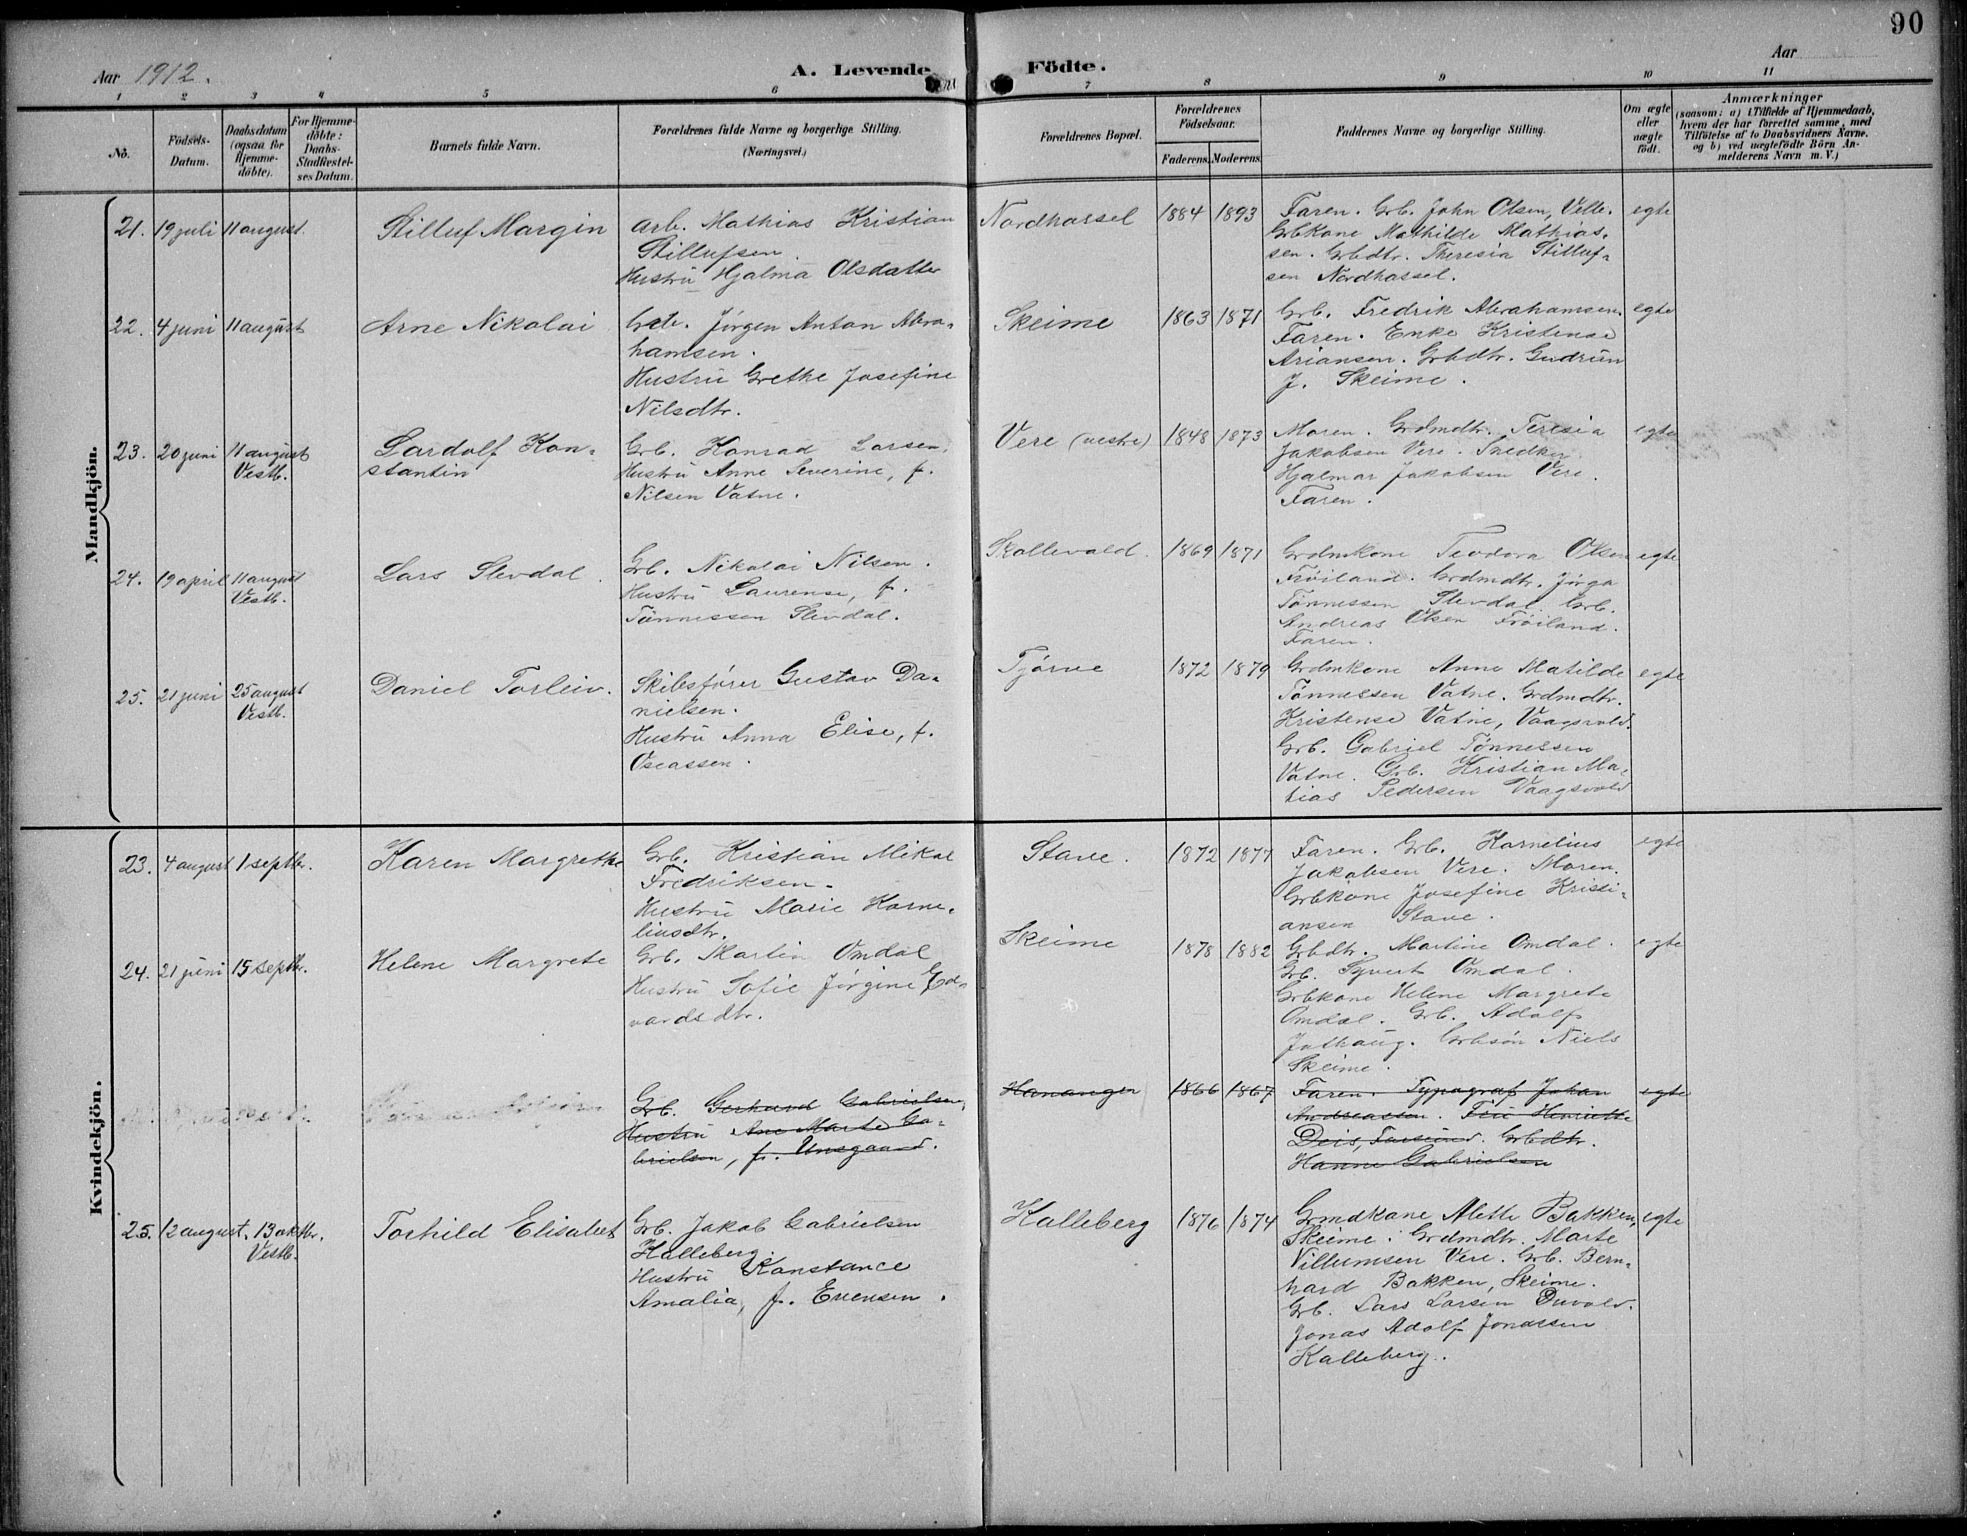 90
Aar 1912.
A. Levende Födte.
Aar
1 2 3 4 5 6 7 8 9 10 11
No.
Födsels-Datum.
Daabsdatum (ogsaa for Hjemme-døbte).
For Hjemme-döbte: Daabs-Stadfæstel-ses Datum.
Barnets fulde Navn.
Forældrenes fulde Navne og borgerlige Stilling.
(Næringsvei.)
Forældrenes Bopæl.
Forældrenes Födselsaar.
Faderens. Moderens.
Faddernes Navne og borgerlige Stilling.
Om ægte eller uægte født.
Anmærkninger
(saasom: a) i Tilfælde af Hjemmedaab,
hvem der har forrettet samme, med
Tilföielse af to Daabsvidners Navne.
og b) ved uægtefödte Börn An-
melderens Navn m. V.)
Mandkjön.
21. 19 juli 11 august. Stilluf Margin
Arb. Mathias Kristian
Stillufsen.
Hustru Hjalma Olsdatter
Nordhassel 1884 1893
Faren. Grb. John Olsen, Velle.
Grbkone Mathilde Mathias-
sen. Grbdtr. Theresia Stilluf-
sen Nordhassel.
egte
22. 4 juni 11 august Arne Nikolai
Jørgen Anton Abra-
hamsen.
Hustru Grethe Josefine
Nilsdtr.
Skeime 1863 1871
Grb. Fredrik Abrahamsen.
Faren. Enke Kristense
Ariansen. Grbdtr. Gudrun
J. Skeime.
egte
23. 20 juni 11 august Vestb. Lardolf Kon-
stantin
Grb. Konrad Larsen.
Hustru Anne Severine, f.
Nilsen Vatne.
Vere (vestre) 1848 1873
Moren. Grdmdtr. Teresia
Jakobsen Vere. Snedker
Hjalmar Jakobsen Vere.
Faren.
egte
24. 19 april 11 august Vestb. Lars Slevdal.
Grb. Nikolai Nilsen.
Hustru Laurense, f.
Tønnessen Slevdal.
Skollevold. 1869 1871
Grdmkone Teodora Olsen
Frøiland. Grdmdtr. Jørga
Tønnessen Slevdal. Grb.
Andreas Olsen Frøiland.
Faren.
egte
25. 21 juni 25 august Vestb. Daniel Torleiv.
Skibsfører Gustav Da-
nielsen.
Hustru Anna Elise, f.
Oseassen.
Tjørve 1872 1879
Grdmkone Anne Matilde
Tønnessen Vatne. Grdmdtr.
Kristense Vatne, Vaagsvold.
Grb. Gabriel Tønnessen
Vatne. Grb. Kristian Ma-
tias Pedersen Vaagsvold
egte
Kvindekjön.
23. 4 august 1 septbr. Karen Margrethe
Grb. Kristian Mikal
Fredriksen.
Hustru Marie Korne-
liusdtr.
Stave. 1872 1877
Faren. Grb. Kornelius
Jakobsen Vere. Moren.
Grbkone Josefine Kristi-
ansen Stave.
egte
24. 21 juni 15 septbr. Helene Margrete
Grb. Martin Omdal
Hustru Sofie Jørgine Ed-
vardsdtr.
Skeime 1878 1882
Grbdtr. Martine Omdal.
Grb. Syvert Omdal.
Grbkone Helene Margrete
Omdal. Grb. Adolf
Jathaug. Grbsøn Niels
Skeime.
egte
Grb. Gerhard Gabrielsen,
Hustru Ane Marte Ga-
brielsen, f. Unsgaard.
Hanangen 1866 1867
Faren. Typograf Johan
Andreassen. Fru Henriette
Deis, Farsund. Grbdtr.
Hanne Gabrielsen
egte
25. 12 august. 13 oktbr. Vestb. Torhild Elisabet
Grb. Jakob Gabrielsen
Kalleberg.
Hustru Konstance
Amalia, f. Evensen.
Kalleberg 1876 1874
Grmdkone Alette Bakken,
Skeime. Grdmdtr. Marte
Villumsen Vere. Grb. Bern-
hard Bakken, Skeime.
Grb. Lars Larsen Duvold.
Jonas Adolf Jonassen
Kalleberg.
egte